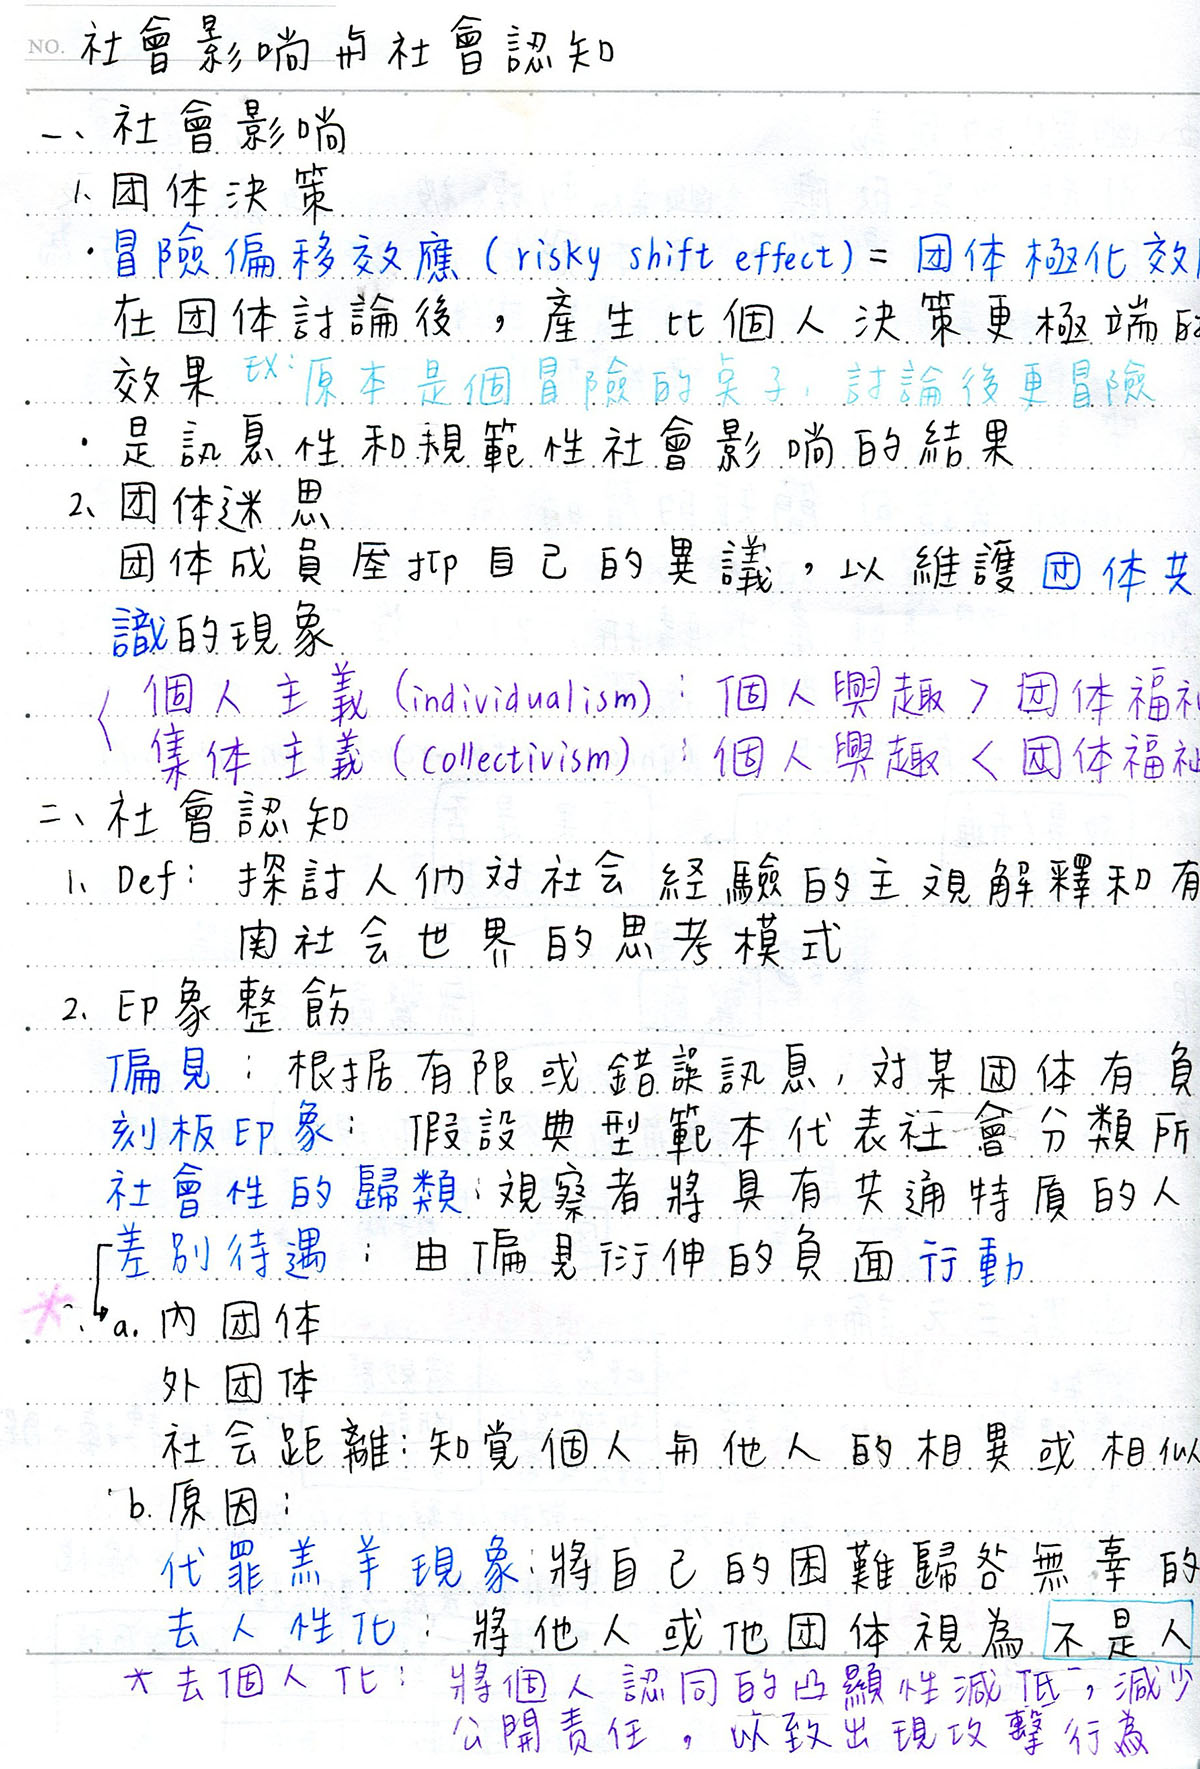 NO. 社會影响与社會認知
一、社會影响
1. 团体決策
・冒險偏移效應 (risky shift effect) = 团体極化效
在团体討論後，產生比個人決策更極端的
效果 EX: 原本是個冒險的桌子，討論後更冒險
・是訊息性和規範性社會影响的結果
2、团体迷思
团体成員压抑自己的異議，以維護团体共
識的現象
個人主義 (individualism)：個人興趣 > 团体福祉
集体主義 (collectivism)：個人興趣 < 团体福祉
二、社會認知
1. Def: 探討人们对社会経驗的主观解釋和有
関社会世界的思考模式
2、印象整飭
偏見：根据有限或錯誤訊息，对某团体有負
刻板印象：假設典型範本代表社會分類所
社會性的歸類：观察者將具有共通特质的人
差別待遇：由偏見衍伸的負面行動
a. 內团体
外团体
社会距離：知覚個人与他人的相異或相似
b. 原因：
代罪羔羊現象：將自己的困難歸咎無辜的
去人性化：將他人或他团体視為不是人
* 去個人化：將個人認同的凸顯性減低，減少
公開责任，以致出現攻擊行為